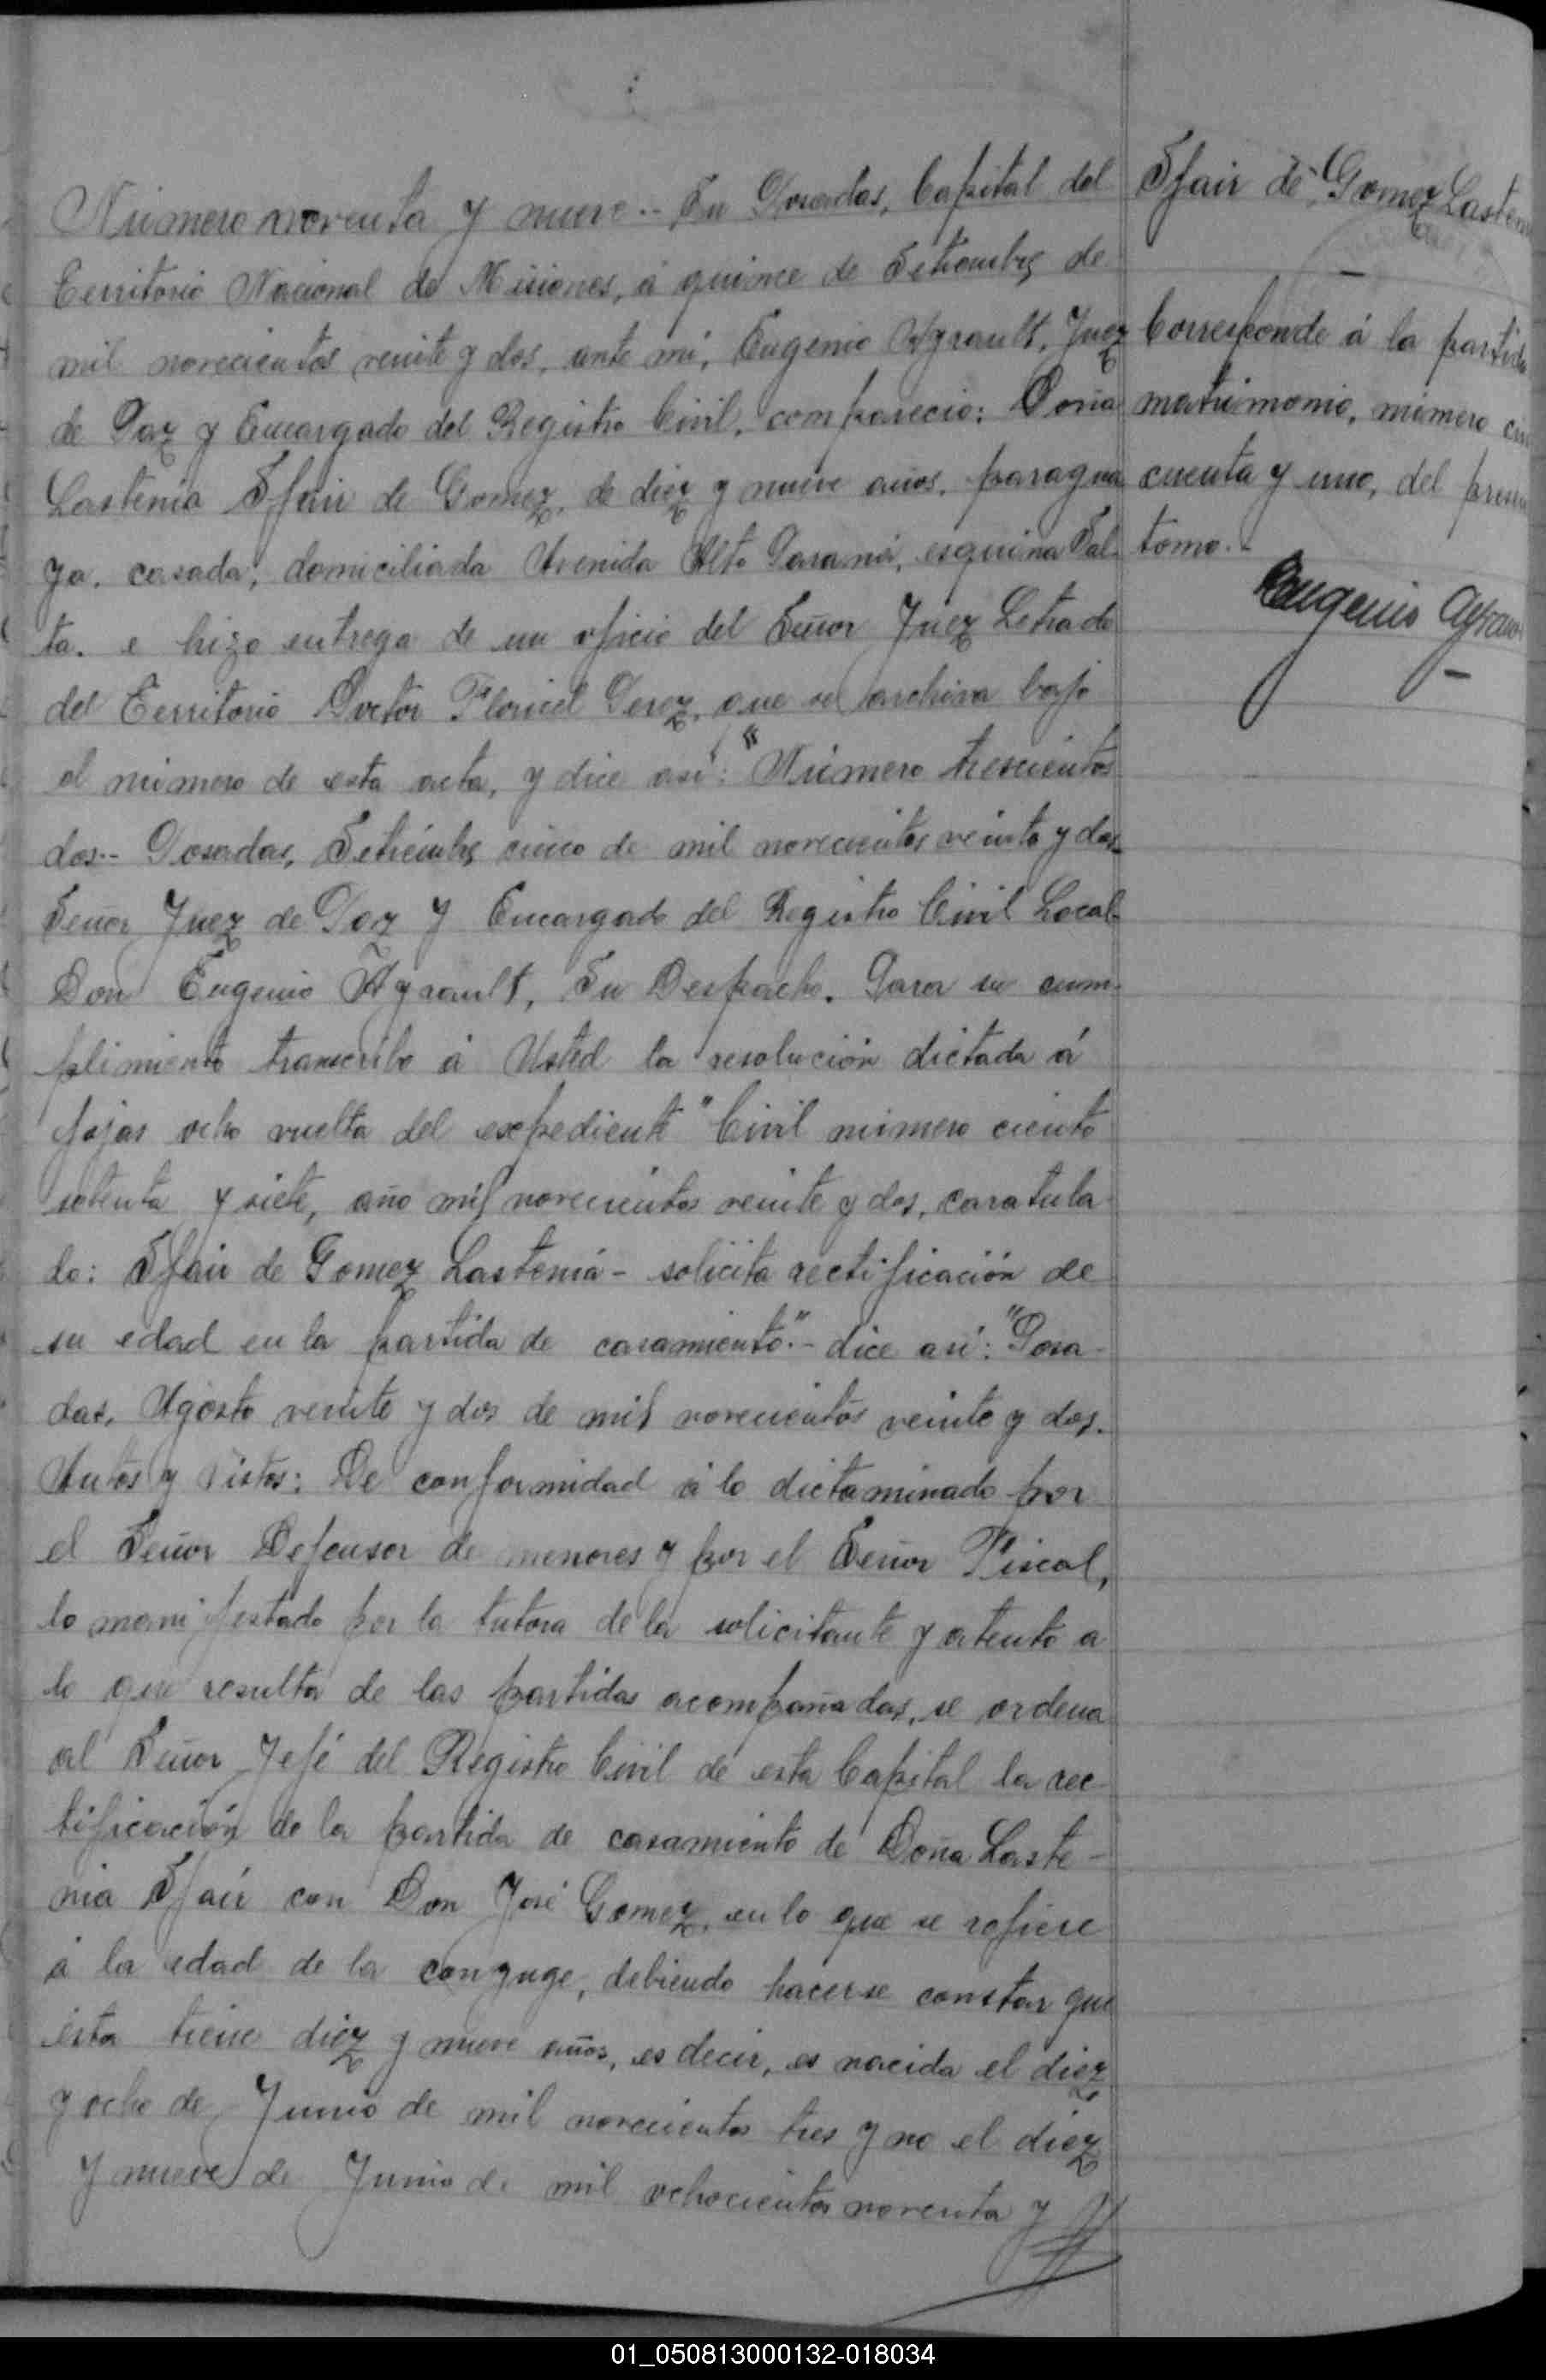 Número noventa y nueve.- En Posadas, Capital del
Territorio Nacional de Misiones, á quince de Setiembre de
mil novecientos veinte y dos, ante mí, Eugenio Ayrault, Juez
de Paz y Encargado del Registro Civil, compareció: Doña
Lastenia Sfair de Gomez, de diez y nueve años, paragua
ya, casada, domiciliada Avenida Alto Paraná, esquina Sal-
ta. e hizo entrega de un oficio del Señor Juez Letrado
del Territorio Doctor Floricel Perez, que se archiva bajo
el número de esta acta, y dice así: "Número trescientos
dos.- Posadas, Setiembre cinco de mil novecientos veinte y dos.
Señor Juez de Paz y Encargado del Registro Civil Local
Don Eugenio Ayrault, Su Despacho. Para su cum-
plimiento transcribo á Usted la resolución dictada á
fojas ocho vuelta del expediente "Civil número ciento
setenta y siete, año mil novecientos veinte y dos, caratula
do: Sfair de Gomez Lastenia - solicita rectificación de
su edad en la partida de casamiento".- dice así: "Posa-
das, Agosto veinte y dos de mil novecientos veinte y dos.
Autos y Vistos: De conformidad á lo dictaminado por
el Señor Defensor de menores y por el Señor Fiscal,
lo manifestado por la tutora de la solicitante y atento a
lo que resulta de las partidas acompañadas, se ordena
al Señor Jefe del Registro Civil de esta Capital la rec-
tificación de la partida de casamiento de Doña Laste-
nia Sfair con Don José Gomez, en lo que se refiere
á la edad de la conyuge, debiendo hacerse constar que
ésta tiene diez y nueve años, es decir, es nacida el diez
y ocho de Junio de mil novecientos tres y no el diez
y nueve de Junio de mil ochocientos noventa y
Sfair de Gomez Lasten
Corresponde á la partida
matrimonio, número cin
cuenta y uno, del presen
tomo.-
Eugenio Ayrau
01_050813000132-018034